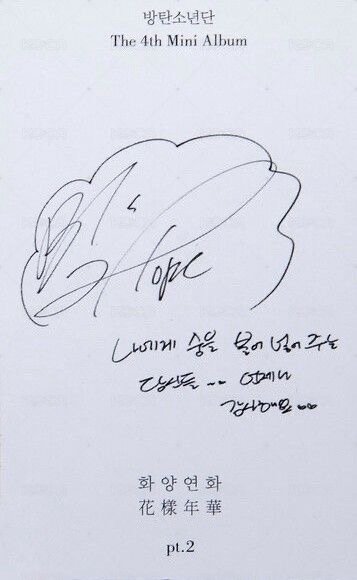 방탄소년단
The 4th Mini Album
Hope
나에게 숨을 불어 넣어 주는
당신들 .. 언제나
감사해요 ..
화양연화
花樣年華
pt.2